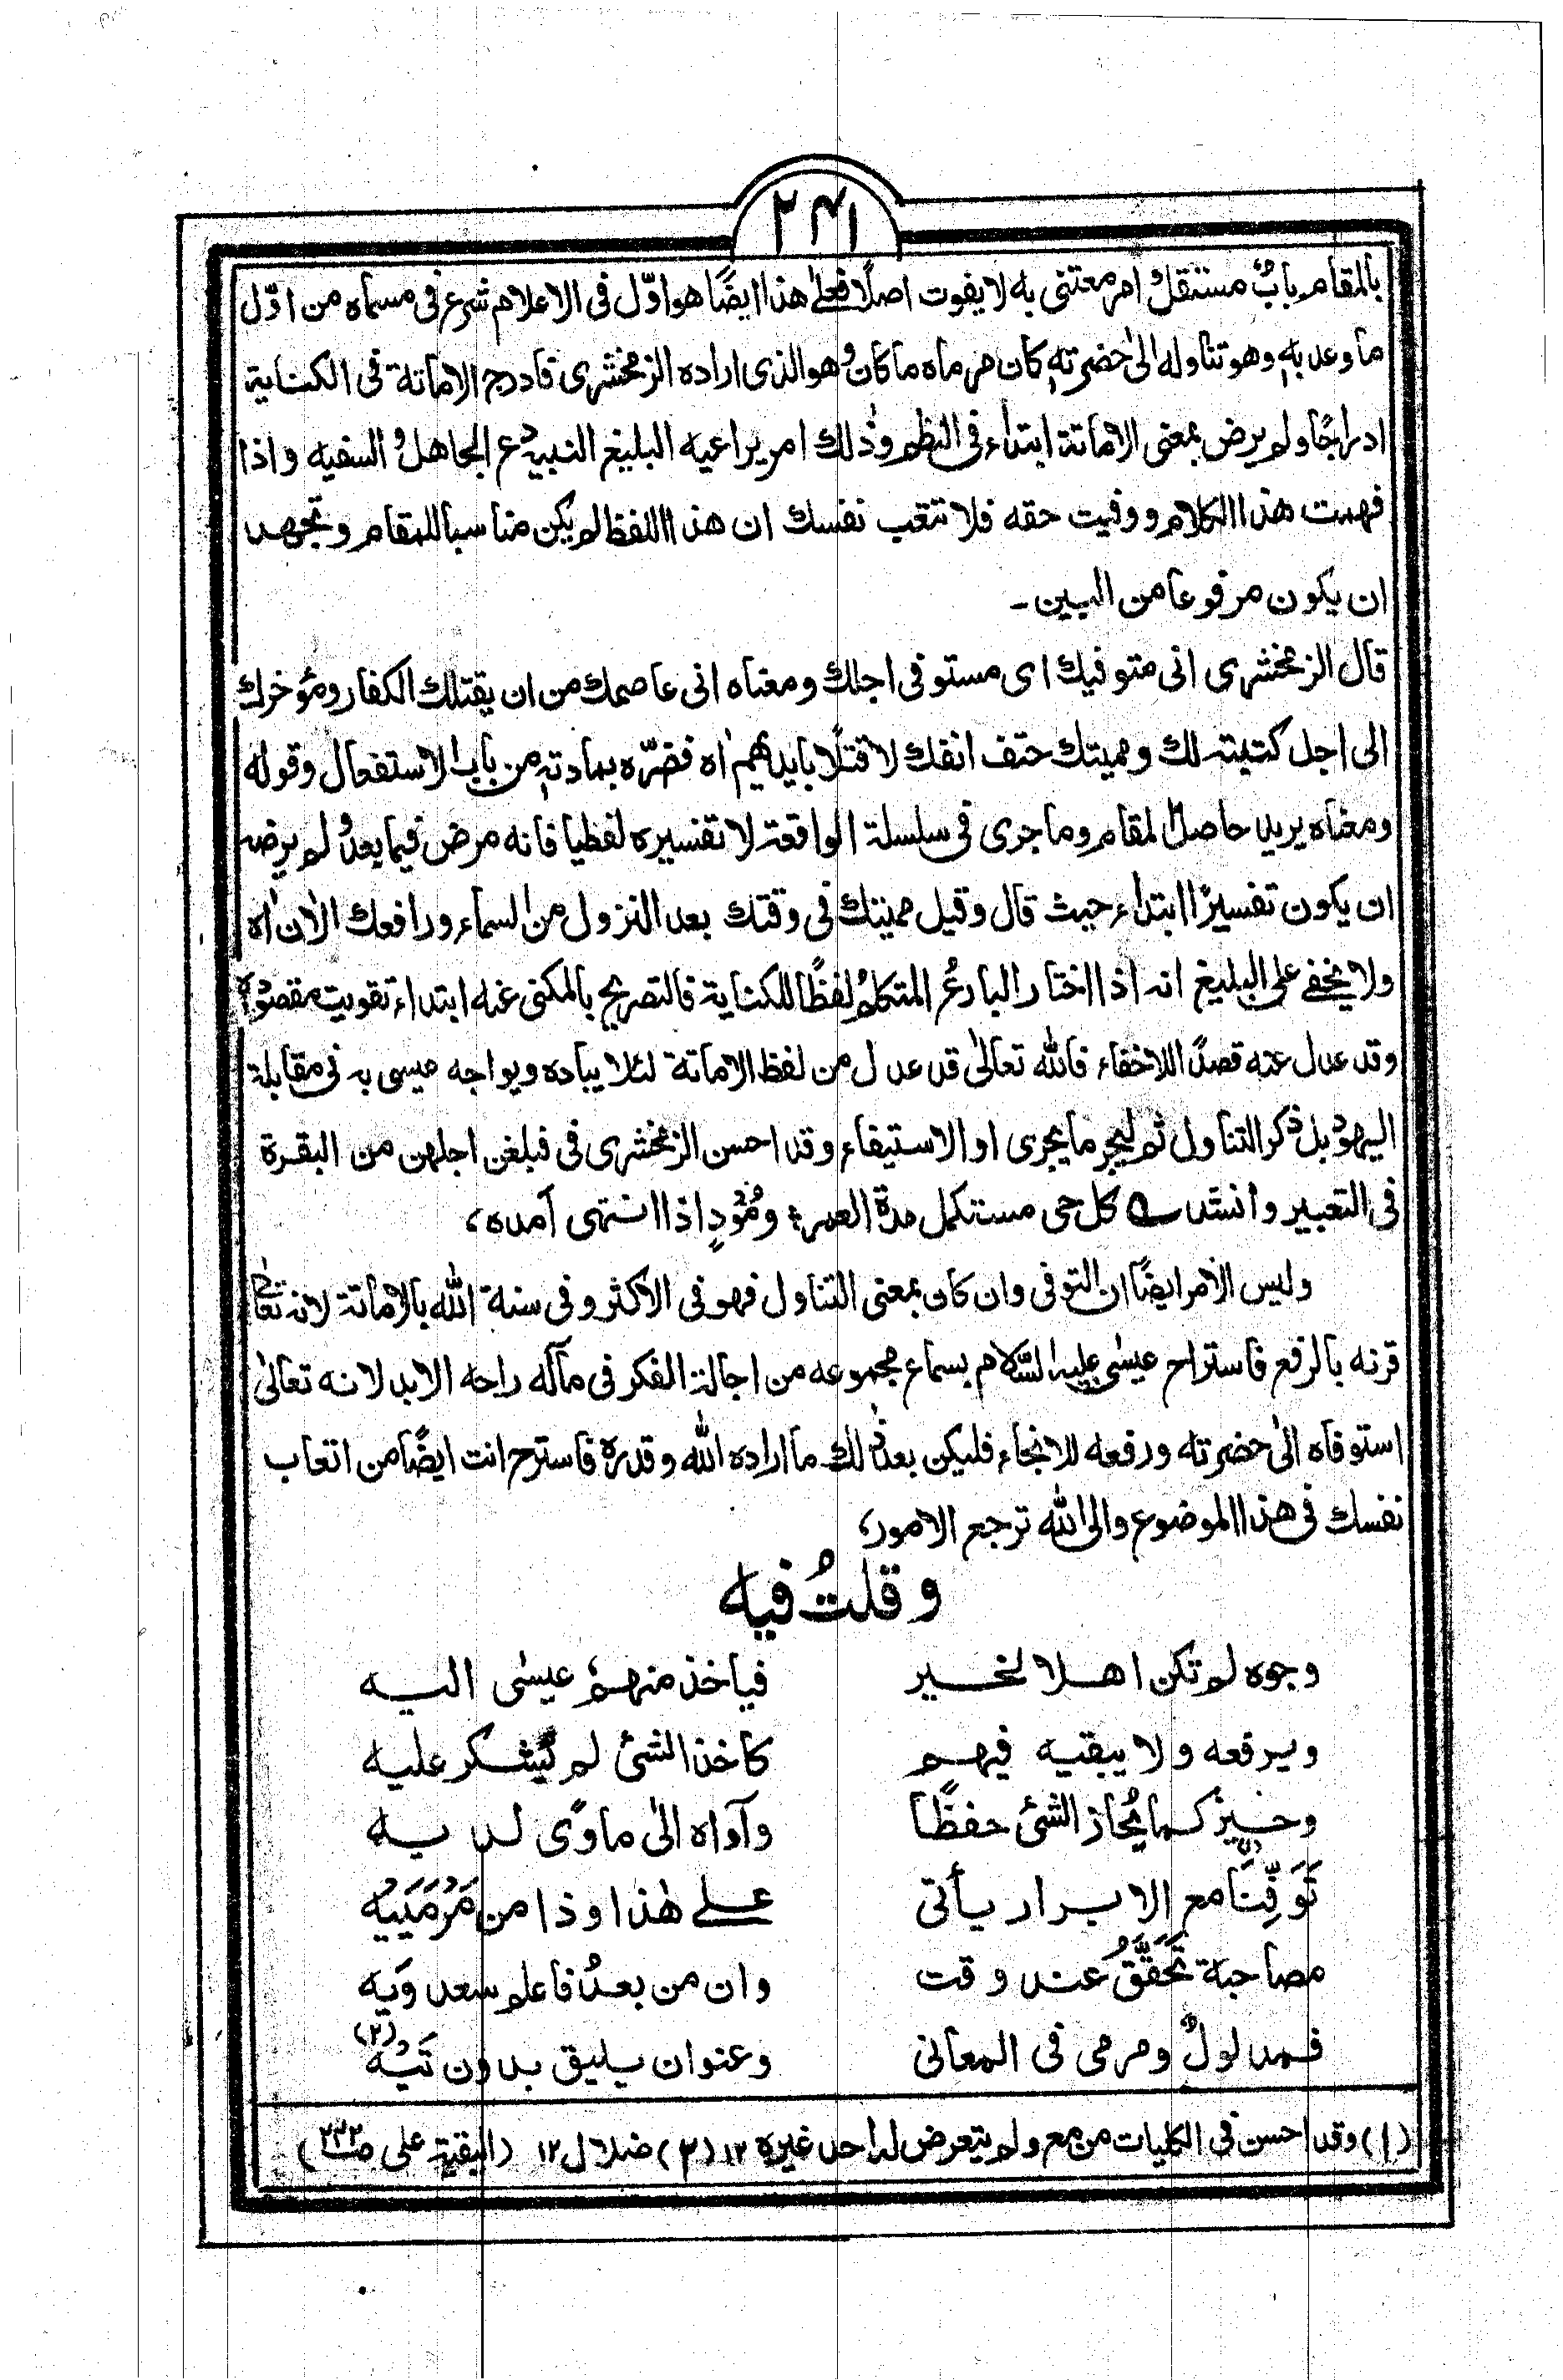 ٢٣١
بالمقام باب مستقل و امر معتنى به لا يفوت اصلا فعلىٰ هذا ايضًا هو اوّل فى الاعلام شرع فى مسماه من اوّل
ما وعد به وهو تناوله الىٰ حضرته كان مرماه ما كان و هو الذى اراده الزمخشرى فادرج الاماتة فى الكناية
ادراجًا ولم يرض بمعنى الاماتة ابتداء فى النظم وذٰلك امر يراعيه البليغ النبيه دع الجاهل و السفيه واذا
فهمت هذا الكلام ووفيت حقه فلا تتعب نفسك ان هذا اللفظ لم يكن مناسبا للمقام وتجهد
ان يكون مرفوعا من البين۔
قال الزمخشرى انى متوفيك اى مستوفى اجلك ومعناه انى عاصمك من ان يقتلك الكفار ومؤخرك
الى اجل كتبته لك ومميتك حتف انفك لا قتلًا بايديهم اه ففسّره بمادته من باب الاستفعال وقوله
ومعناه يريد حاصل المقام وما جرى فى سلسلة الواقعة لا تفسيره لفظيا فانه مرض فيما بعد و لم يرضه
ان يكون تفسيرًا ابتداء حيث قال وقيل مميتك فى وقتك بعد النزول من السماء ورافعك الاٰن اه
ولا يخفى على البليغ انه اذا اختار البارع المتكلم لفظًا للكناية فالتصريح بالمكنى عنه ابتداء تفويت مقصوده
وقد عدل عنه قصدًا للاخفاء فالله تعالىٰ قد عدل من لفظ الاماتة لئلا يباده ويواجه عيسى به فى مقابلة
اليهود بل ذكر التناول ثم ليجر ما يجرى او الاستيفاء وقد احسن الزمخشرى فى فبلغن اجلهن من البقرة
فى التعبير وانشد ؎ كل حى مستكمل مدة العمر؛ ومُؤدٍ اذا انتهى آمده،
وليس الامر ايضًا ان التوفى وان كان بمعنى التناول فهو فى الاكثر و فى سنة الله بالاماتة لانه تعالىٰ
قرنه بالرفع فاستراح عيسٰى عليه السّلام بسماع مجموعه من اجالة الفكر فى مآله راحة الابد لانه تعالىٰ
استوفاه الىٰ حضرته ورفعه للانجاء فليكن بعد ذٰلك ما اراده الله وقدره فاسترح انت ايضًا من اتعاب
نفسك فى هذا الموضوع والى الله ترجع الامور،
وقلتُ فيه
وجوه لم تكن اهلا لخير فياخذ منهم عيسٰى اليه
ويرفعه ولا يبقيه فيهم كاخذ الشئ لم يُشكر عليه
وحيز كما يُحاز الشئ حفظًا وآواه الىٰ ماوًى لديه
تَوَفَّنَا مع الابرار يأتى علىٰ هٰذا وذا من مَرْمَيَيْه
مصاحبة تَحَقَّقُ عند وقت وان من بعد فاعلم سعدويه
فمدلول و مرمى فى المعانى وعنوان يليق بدون تَيْه (٢)
(١) وقد احسن فى الكليات من مع ولم يتعرض له احد غيره ١٢ (٢) ضلال ١٢ (البقية على ص ٢٣٢)